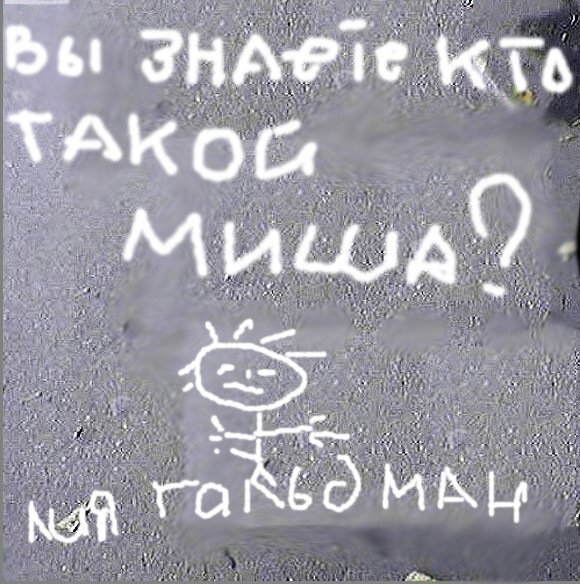 ВЫ ЗНАЕТЕ КТО
ТАКОЙ
МИША?
гальдман